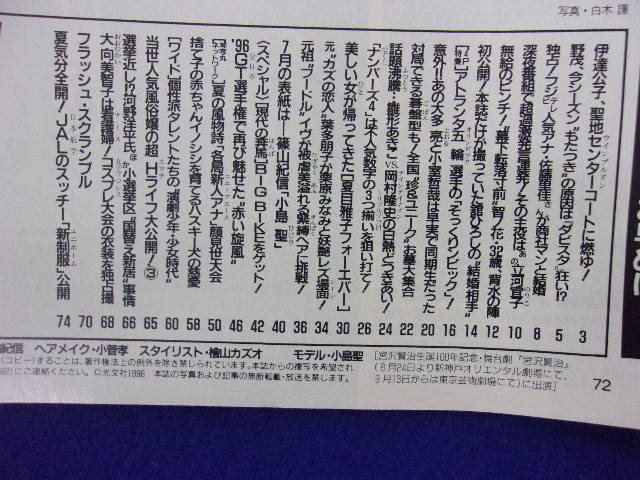 写真・白木 護
伊達公子、聖地センターコートに燃ゆ! 3
野茂、今シーズン“もたつき”の原因は「ダビスタ」狂い!? 5
独占!フジテレビ人気女子アナ・佐藤里佳さんが商社マンと結婚 8
深夜番組で超過激発言連発!その主役はあの“立河宜子” 10
無給のピンチ!幕下転落寸前“智ノ花・32歳、背水の陣 12
初公開!本誌だけが撮っていた舘ひろしの“結婚相手” 14
[4P特集]アトランタ五輪選手の「そっくりンピック」! 16
意外!!あの大多 亮と小室哲哉は早実で同期生だった 18
対局できる碁盤型も!全国“珍&ユニーク”お墓大集合 20
話題沸騰!雛形あきこVS.岡村隆史の白熱どつきあい! 22
「ナンバーズ4」は“大人気数字の3つ揃いを狙い打て! 24
美しい女が帰ってきた[夏目雅子フォーエバー] 26
元“カズの恋人”葉多朋子が栗原みなみと妖艶レズ場面! 30
元祖“プードル”イヴが被虐美溢れる緊縛ヘアに挑戦! 34
7月の表紙は――篠山紀信「小島 聖」 36
[スペシャル]現代の奔馬BIG BIKEをゲット! 40
'96GⅠ選手権で再び魅せた“赤い旋風” 42
夏の風物詩、各局新人アナ「顔見世大会 46
[ワイド]個性派タレントたちの“演劇少年・少女時代” 50
捨て子の赤ちゃんイノシシを育てるハスキー犬の慈愛 58
当世人気風俗嬢の超Hライフ大公開!③ 60
選挙近し!?河野洋平氏ほか小選挙区“国替え新居”事情 65
大向美智子は看護婦!?コスプレ大会の衣装を独占撮 66
フラッシュ・スクランブル 68
夏気分全開!JALのスッチー「新制服」公開 70
74
紀信 ヘアメイク・小菅孝 スタイリスト・檜山カズオ モデル・小島聖
(コピー)することは、著作権法上の例外を除き禁じられています。本誌からの複写を希望され
82)にご連絡ください。 ©光文社1996 本誌の写真および記事の無断転載・放送を禁じます。
[宮沢賢治生誕100年記念・舞台劇『宮沢賢治』
(8月24日より新神戸オリエンタル劇場にて、
9月13日からは東京芸術劇場にて)に出演]
72